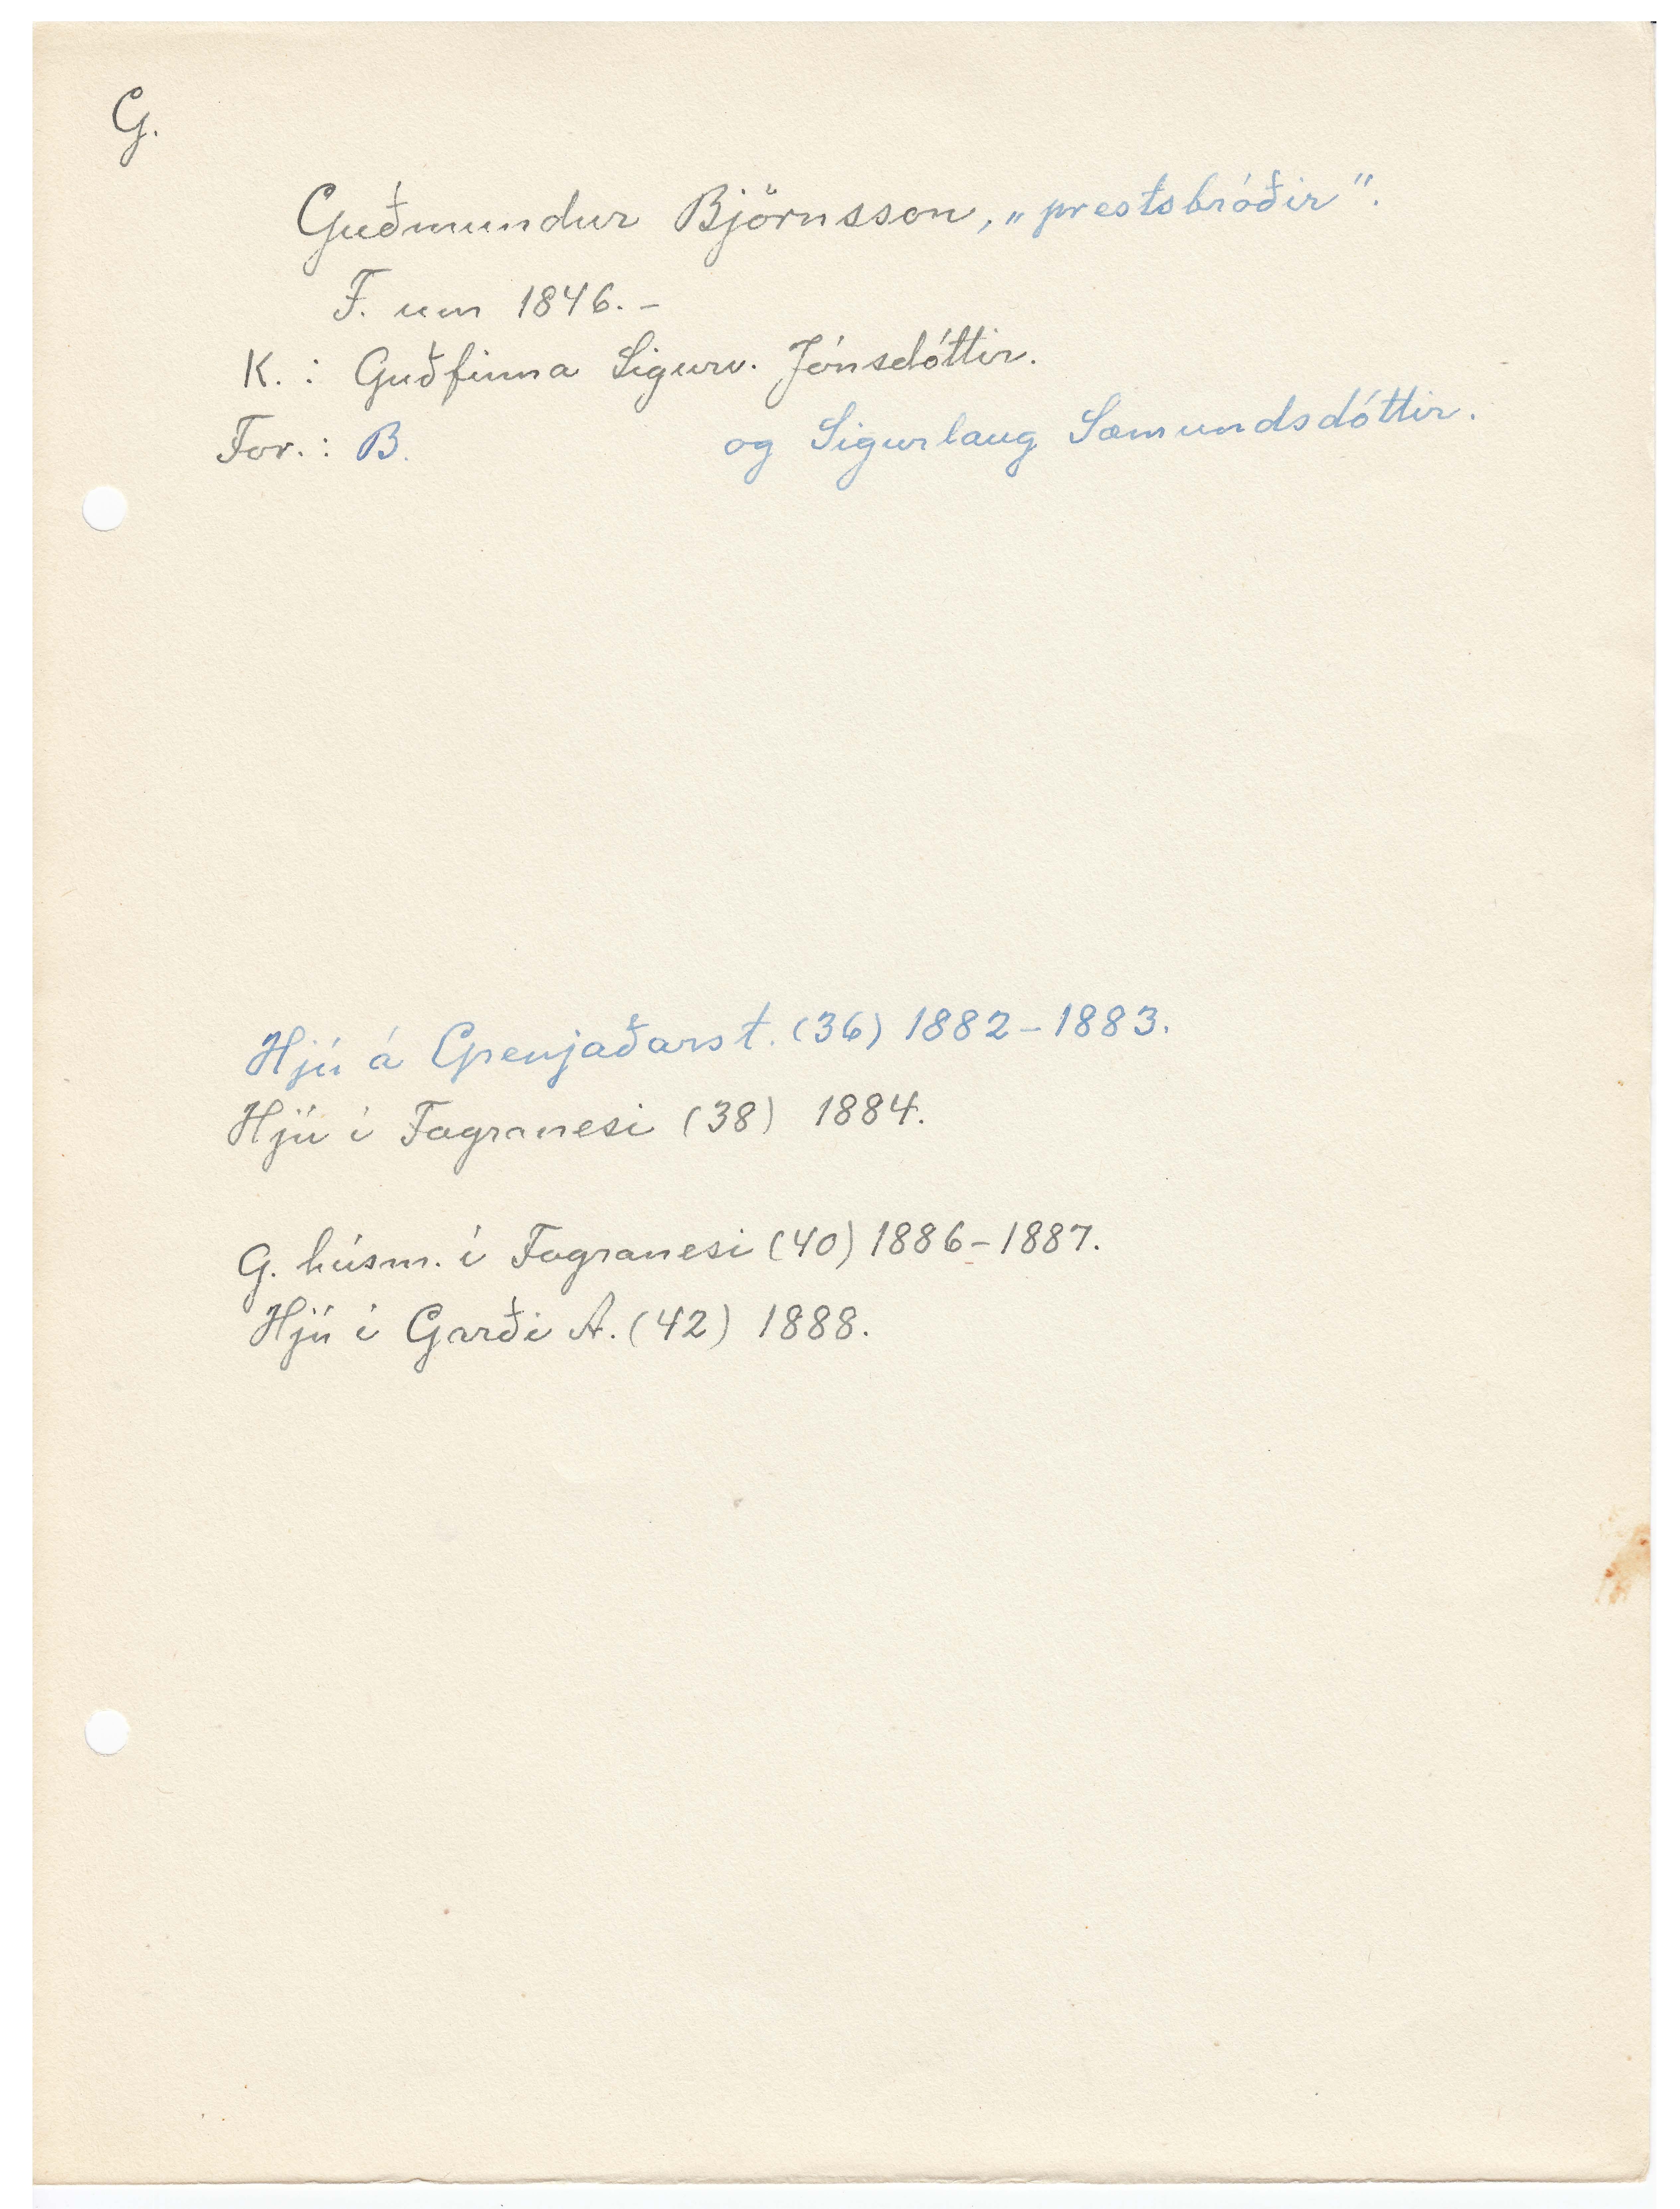 G.
Guðmundur Björnsson, „prestsbróðir“.
F. um 1846. –
K. : Guðfinna Sigurv. Jónsdóttir.
For. : B. og Sigurlaug Sæmundsdóttir.
Hjú á Grenjaðarst. (36) 1882–1883.
Hjú í Fagranesi (38) 1884.
G. húsm. í Fagranesi (40) 1886–1887.
Hjú í Garði A. (42) 1888.